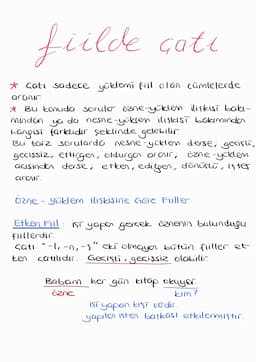 fiilde çatı
* Çatı sadece yüklemi fiil olan cümlelerde
aranır
* Bu konuda sorular özne-yüklem ilişkisi bakı-
mından ya da nesne-yüklem ilişkisi bakımından
hangisi farklıdır şeklinde gelebilir
Bu tarz sorularda nesne-yüklem derse, geçişli,
geçissiz, ettirgen, oldurgan aranır, özne-yüklem
açısından derse, etken, edilgen, dönüşlü, işteş
aranır
Özne - Yüklem İlişkisine Göre Fiiller
Etken Fiil : İşi yapan gerçek öznenin bulunduğu
fiillerdir.
Çatı "-l, -n, -ş" eki olmayan bütün fiiller et-
ken çatılıdır. Geçişli, geçissiz olabilir.
Babam her gün kitap okuyor.
özne kim?
İşi yapan kişi vedir.
yapılan işten başkası etkilenmiştir.